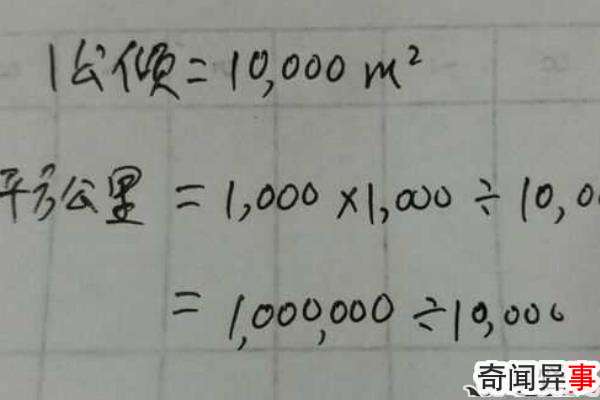 1公倾=10,000 m²
平方公里 = 1,000 ×1,000 ÷ 10,0
= 1,000,000 ÷10,000
奇闻异事